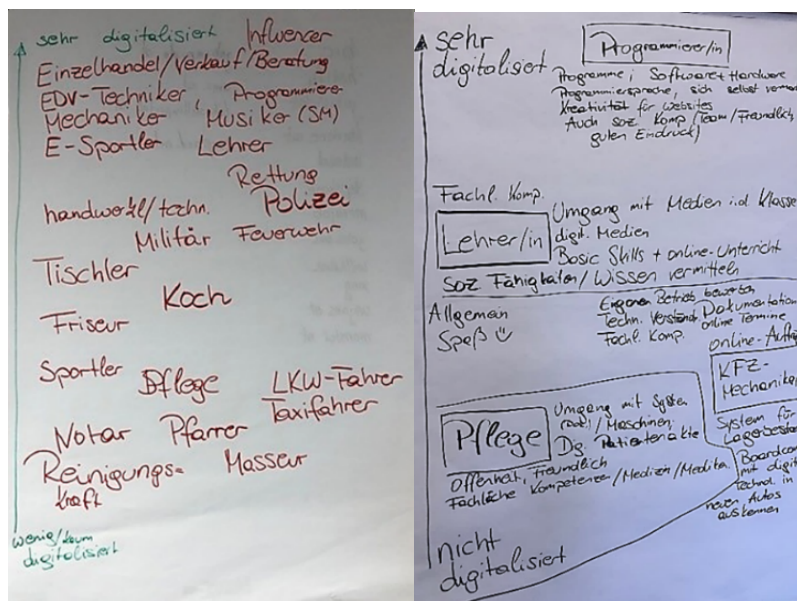 sehr digitalisiert Influencer
Einzelhandel/Verkauf/Beratung
EDV-Techniker, Programmierer
Mechaniker Musiker (SM)
E-Sportler Lehrer
Rettung
handwerkl/techn. Polizei
Militär Feuerwehr
Tischler
Koch
Friseur
Sportler Pflege LKW-Fahrer
Taxifahrer
Notar Pfarrer
Reinigungs- Masseur
kraft
wenig/kaum
digitalisiert
sehr
digitalisiert
Programmierer/in
Programme, Software + Hardware
Programmiersprache, sich selbst
Kreativität für Websites
Auch soz Komp (Team/Freundlich,
guten Eindruck)
Fachl. Komp.
Lehrer/in
Umgang mit Medien i.d Klasse
digit. Medien
Basic Skills + online-Unterricht
soz Fähigkeiten/Wissen vermitteln
Allgemein
Spaß
Eigenen Betrieb bewerben
Techn. Verständ. Dokumentation
Fachl. Komp. online Termine
online-
KFZ-
Mechaniker
System für
Pflege
Umgang mit System
/Maschinen;
Dig. Patientenakte
Offenheit, freundlich
Fachliche Kompetenzen/Medizin/Medika
mit digit
in
neuen Autos
auskennen
nicht
digitalisiert